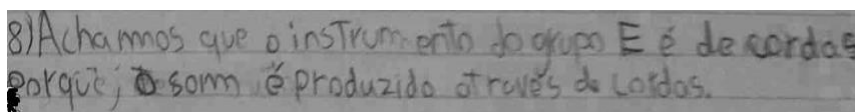 8) Achamos que o instrumento do grupo E é de cordas
Porque, o som é produzido através de cordas.